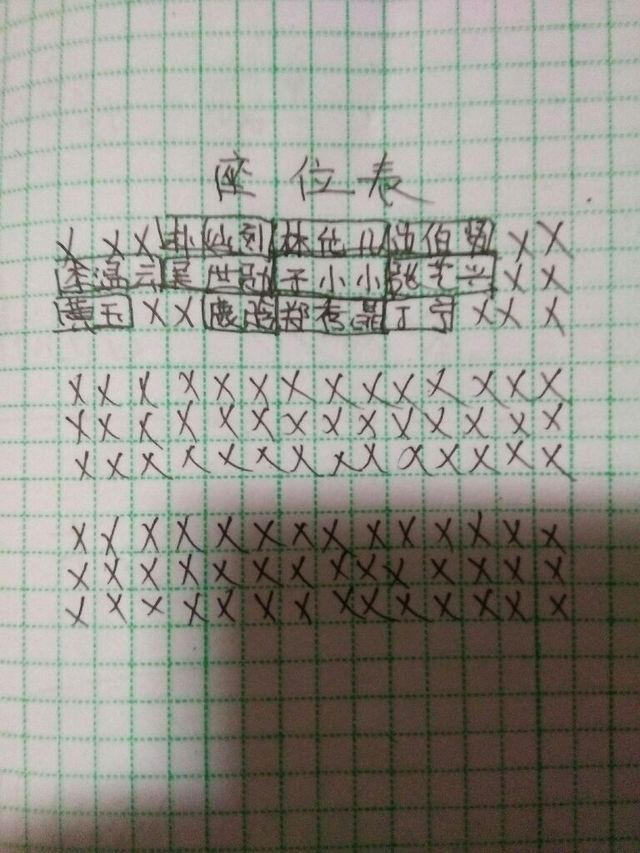 座 位 表
X X X 朴灿列 林 儿 边伯贤 X X
李温云 吴世勋 于小小 张艺兴 X X
黄玉 X X 鹿晗 郑秀晶 丁宁 X X X
X X X X X X X X X X X X X X
X X X X X X X X X X X X X X
X X X X X X X X X X X X X X
X X X X X X X X X X X X X X
X X X X X X X X X X X X X X
X X X X X X X X X X X X X X